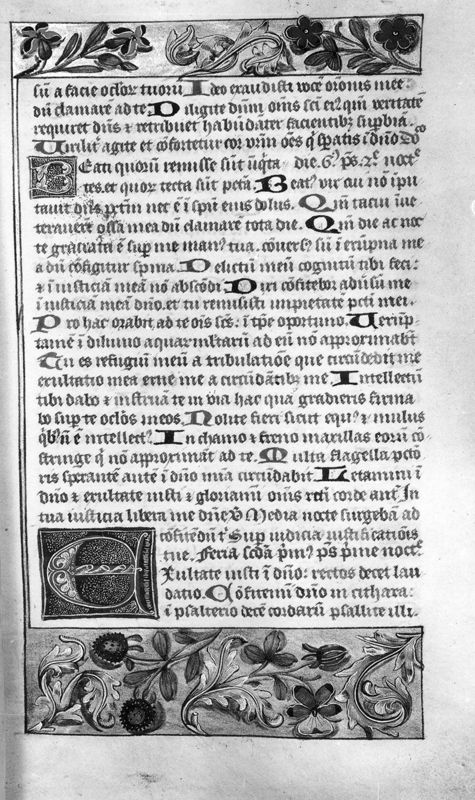 sūt a facie oclor̄ tuorū Ideo exaudisti vocē or̄onis mee:
dū clamarē ad te Diligite dn̄m om̄s sc̄i eiꝰ qm̄ veritatē
requiret dn̄s ⁊ retribuet habūdāter facientibꝫ supbiā.
Uirilit̄ agite et cōfortetur cor vr̄m om̄s q̄ sp̄atis ī dn̄o
Beati quorū remisse sūt die. 6ª. ps. 2ⁱ. noctꝰ
tes. et quor̄ tecta sūt pctā. Beatꝰ vir cui nō īpu
tauit dn̄s pctm̄ nec ē ī spū eius dolus. Qm̄ tacui īue
terauerūt ossa mea dū clamarē tota die. Qm̄ die ac noc
te grauata ē sup me manꝰ tua. cōuersꝰ sū ī erūpna me
a dū cōfigitur spina. Delictū meū cognitū tibi feci:
⁊ ī iusticiā meā nō abscōdi. Dixi cōfitebor aduersū me
ī iusticiā meā dn̄o. et tu remisisti impietatē pctī mei.
Pro hac orabit ad te om̄s sc̄s: ī tp̄e oportuno. Uerūp̄
tamē ī diluuio aquar̄ multarū ad eū nō approximabūt
Tu es refugiū meū a tribulatiōe que circūdedit me
exultatio mea erue me a circūdātibꝫ me. Intellectū
tibi dabo ⁊ instruā te in via hac qua gradieris firma
bo sup te oclōs meos. Nolite fieri sicut equꝰ ⁊ mulus
qⁱbꝫ nō ē intellectꝰ. In chamo ⁊ freno maxillas eorū cō
stringe q̄ nō approximāt ad te. Multa flagella pctō
ris sperantē autē ī dn̄o mīa circūdabit Letamini ī
dn̄o ⁊ exultate iusti ⁊ gloriamī om̄s recti corde anꝰ. In
tua iusticia libera me dn̄e ꝟ Media nocte surgebā ad
cōfitēdū tⁱ Sup iudicia iustificatiōis
tue. Feria scd̄a prīmꝰ. ps prīme noctꝰ.
Exultate iusti ī dn̄o: rectos decet lau
datio. Cōfitemī dn̄o in cithara:
ī psalterio decē cordarū psallite illi.